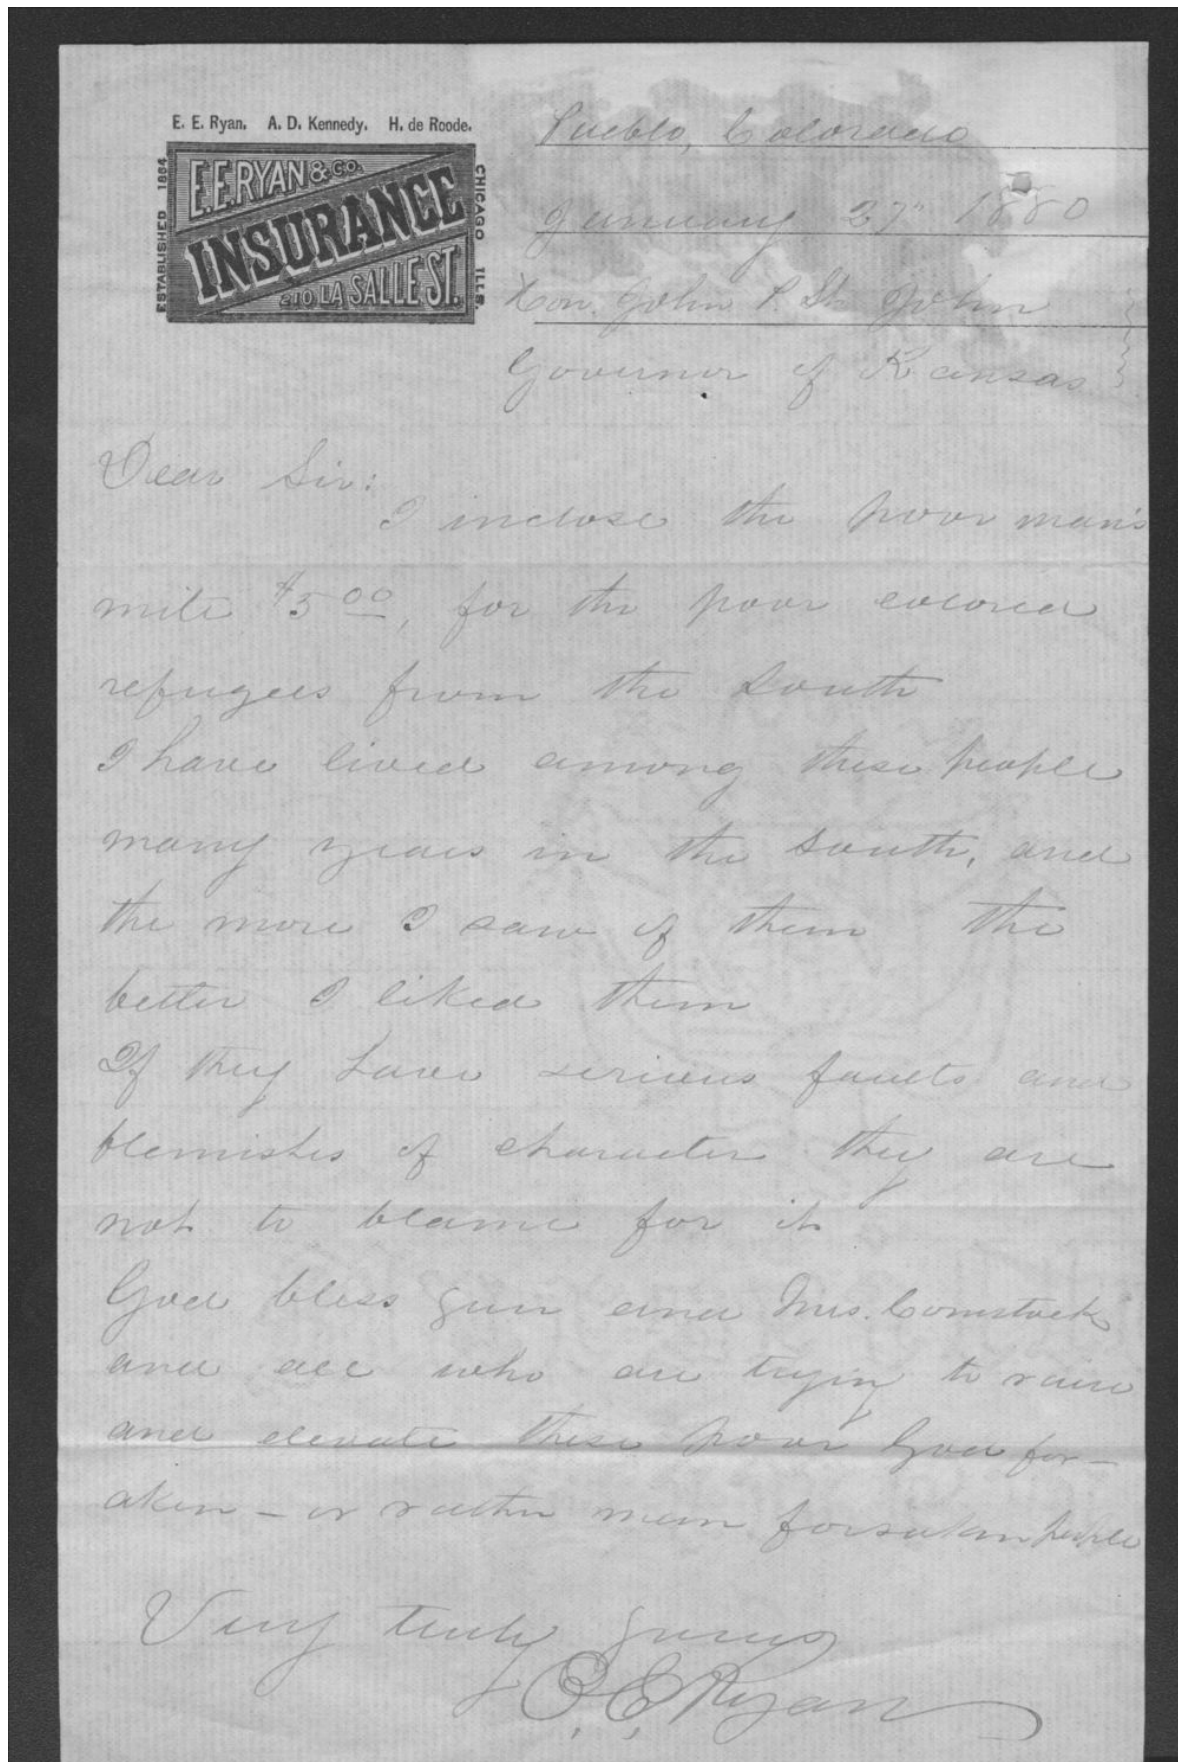 E. E. Ryan. A. D. Kennedy. H. de Roode.
ESTABLISHED 1864
E.E. RYAN & CO.
INSURANCE
210 LA SALLE ST.
CHICAGO ILLS.
Pueblo, Colorado
January 27th 1880
Hon. John P. St. John
Governor of Kansas
Dear Sir:
I inclose the poor man's
mite $5 00, for the poor colored
refugees from the South
I have lived among these people
many years in the South, and
the more I saw of them the
better I liked them
If they have serious faults and
blemishes of character they are
not to blame for it
God bless you and Mrs. Comstock
and all who are trying to raise
and elevate these poor God for-
aken - or rather man forsaken people
Very truly yours
E. E. Ryan